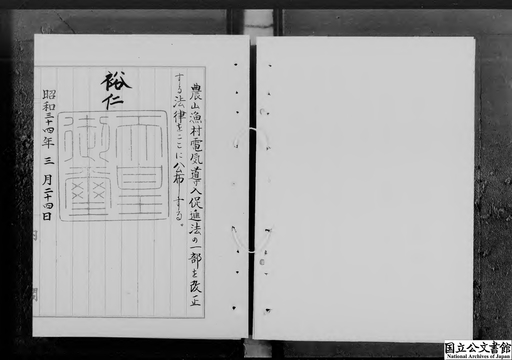 農山漁村電気導入促進法の一部を改正
する法律をここに公布する。
裕仁
天皇
御璽
昭和三十四年三月二十四日
内閣
国立公文書館
National Archives of Japan